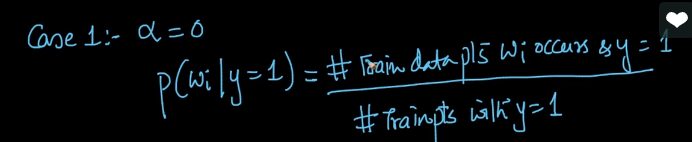 Case 1:- α = 0
P(wi | y=1) = # Train data pts wi occurs & y = 1
# Train pts with y=1